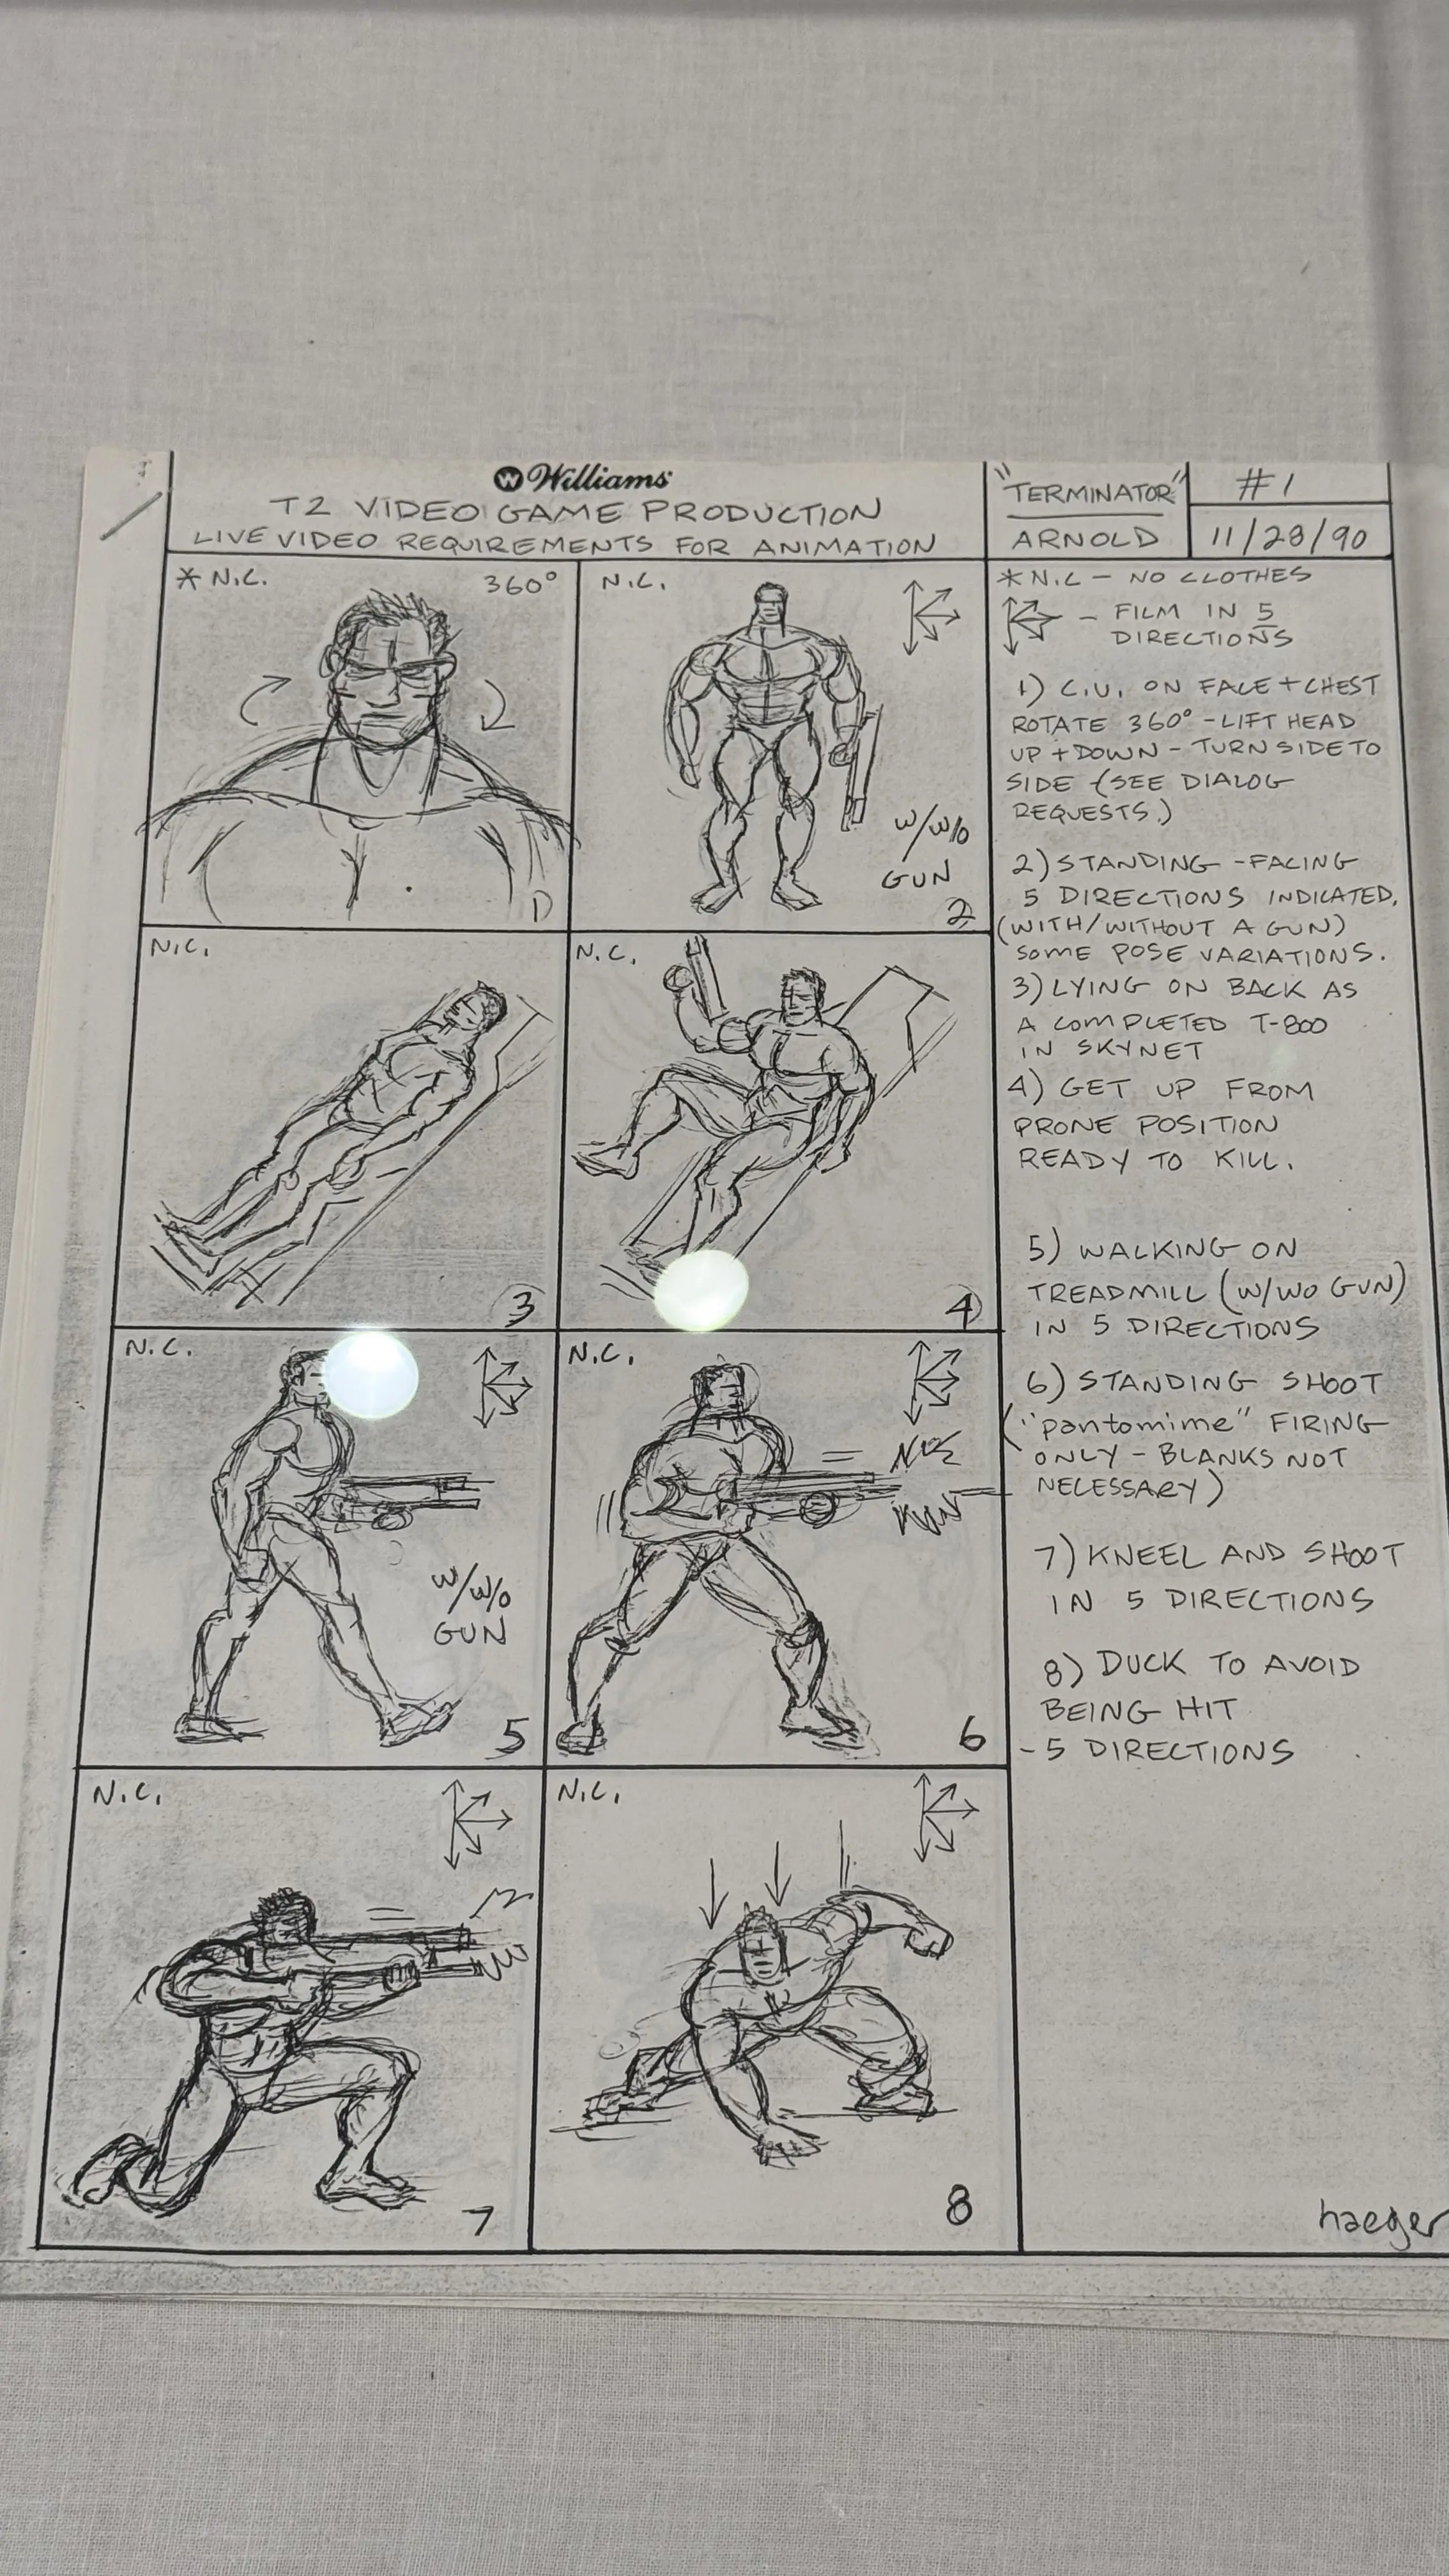 W Williams
T2 VIDEO GAME PRODUCTION
LIVE VIDEO REQUIREMENTS FOR ANIMATION
"TERMINATOR"
ARNOLD
#1
11/28/90
* N.C.
360°
1)
N.C.
W/W/O
GUN
2
N.C.
3
N.C.
4
N.C.
W/W/O
GUN
5
N.C.
6
N.C.
7
N.C.
8
* N.C - NO CLOTHES
- FILM IN 5
DIRECTIONS
1) C.U. ON FACE + CHEST
ROTATE 360° - LIFT HEAD
UP + DOWN - TURN SIDE TO
SIDE (SEE DIALOG
REQUESTS.)
2) STANDING - FACING
5 DIRECTIONS INDICATED.
(WITH/WITHOUT A GUN)
SOME POSE VARIATIONS.
3) LYING ON BACK AS
A COMPLETED T-800
IN SKYNET
4) GET UP FROM
PRONE POSITION
READY TO KILL.
5) WALKING ON
TREADMILL (W/WO GUN)
IN 5 DIRECTIONS
6) STANDING SHOOT
("pantomime" FIRING
ONLY - BLANKS NOT
NECESSARY)
7) KNEEL AND SHOOT
IN 5 DIRECTIONS
8) DUCK TO AVOID
BEING HIT
- 5 DIRECTIONS
haeger